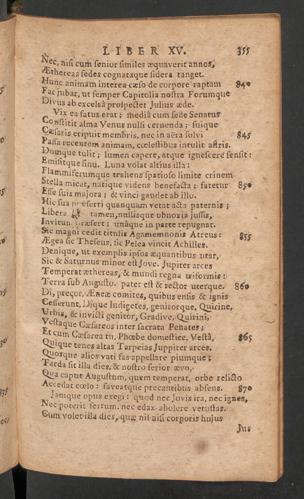 LIBER XV. 355
Nec, nisi cum senior similes æquaverit annos,
Æthereas sedes cognataque sidera tanget.
Hanc animam interea cæso de corpore raptam 840
Fac jubar, ut semper Capitolia nostra Forumque
Divus ab excelsâ prospectet Julius æde.
Vix ea fatus erat: mediâ cum sede Senatus
Constitit alma Venus nulli cernenda; suique
Cæsaris eripuit membris, nec in aëra solvi 845
Passa recentem animam, cœlestibus intulit astris.
Dumque tulit; lumen capere, atque ignescere sensit:
Emisitque sinu. Luna volat altius illa:
Flammiferumque trahens spatioso limite crinem
Stella micat, natique videns benefacta; fatetur 850
Esse suis majora; & vinci gaudet ab illo.
Hic sua præferri quamquam vetat acta paternis;
Libera tamen, nullisque obnoxia jussis,
Invitum præfert: unâque in parte repugnat.
Sic magni cedit titulis Agamemnonis Atreus: 855
Ægea sic Theseus, sic Pelea vincit Achilles.
Denique, ut exemplis ipsos æquantibus utar,
Sic & Saturnus minor est Jove. Jupiter arces
Temperat æthereas, & mundi regna triformis:
Terra sub Augusto. pater est & rector uterque. 860
Di, precor, Æneæ comites, quibus ensis & ignis
Cesserunt, Dîque Indigetes, genitorque, Quirine,
Urbis, & invicti genitor, Gradive, Quirini,
Vestaque Cæsareos inter sacrata Penates;
Et cum Cæsarea tu, Phœbe domestice, Vestâ, 865
Quique tenes altas Tarpeias Juppiter arces.
Quosque alios vati fas appellare piumque:
Tarda sit illa dies, & nostro serior ævo,
Qua caput Augustum, quem temperat, orbe relicto
Accedat cœlo: faveatque precantibus absens. 870
Jamque opus exegi: quod nec Jovis ira, nec ignes,
Nec poterit ferrum, nec edax abolere vetustas.
Cum volet illa dies, quæ nil nisi corporis hujus
Jus